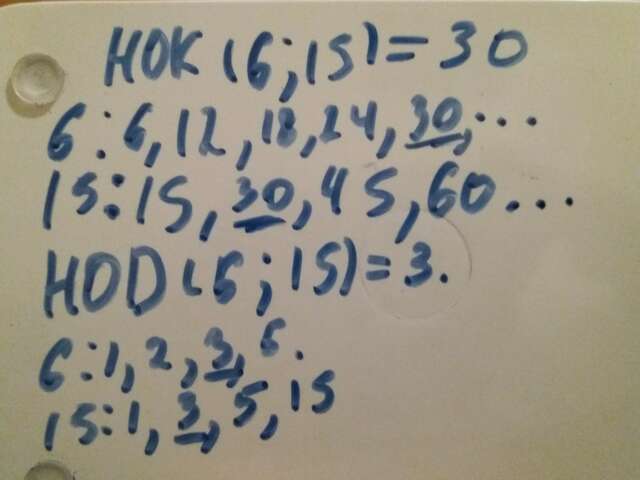 НОК (6;15)=30
6:6,12,18,24,30,...
15:15,30,45,60...
НОD(6;15)=3.
6:1,2,3,6.
15:1,3,5,15